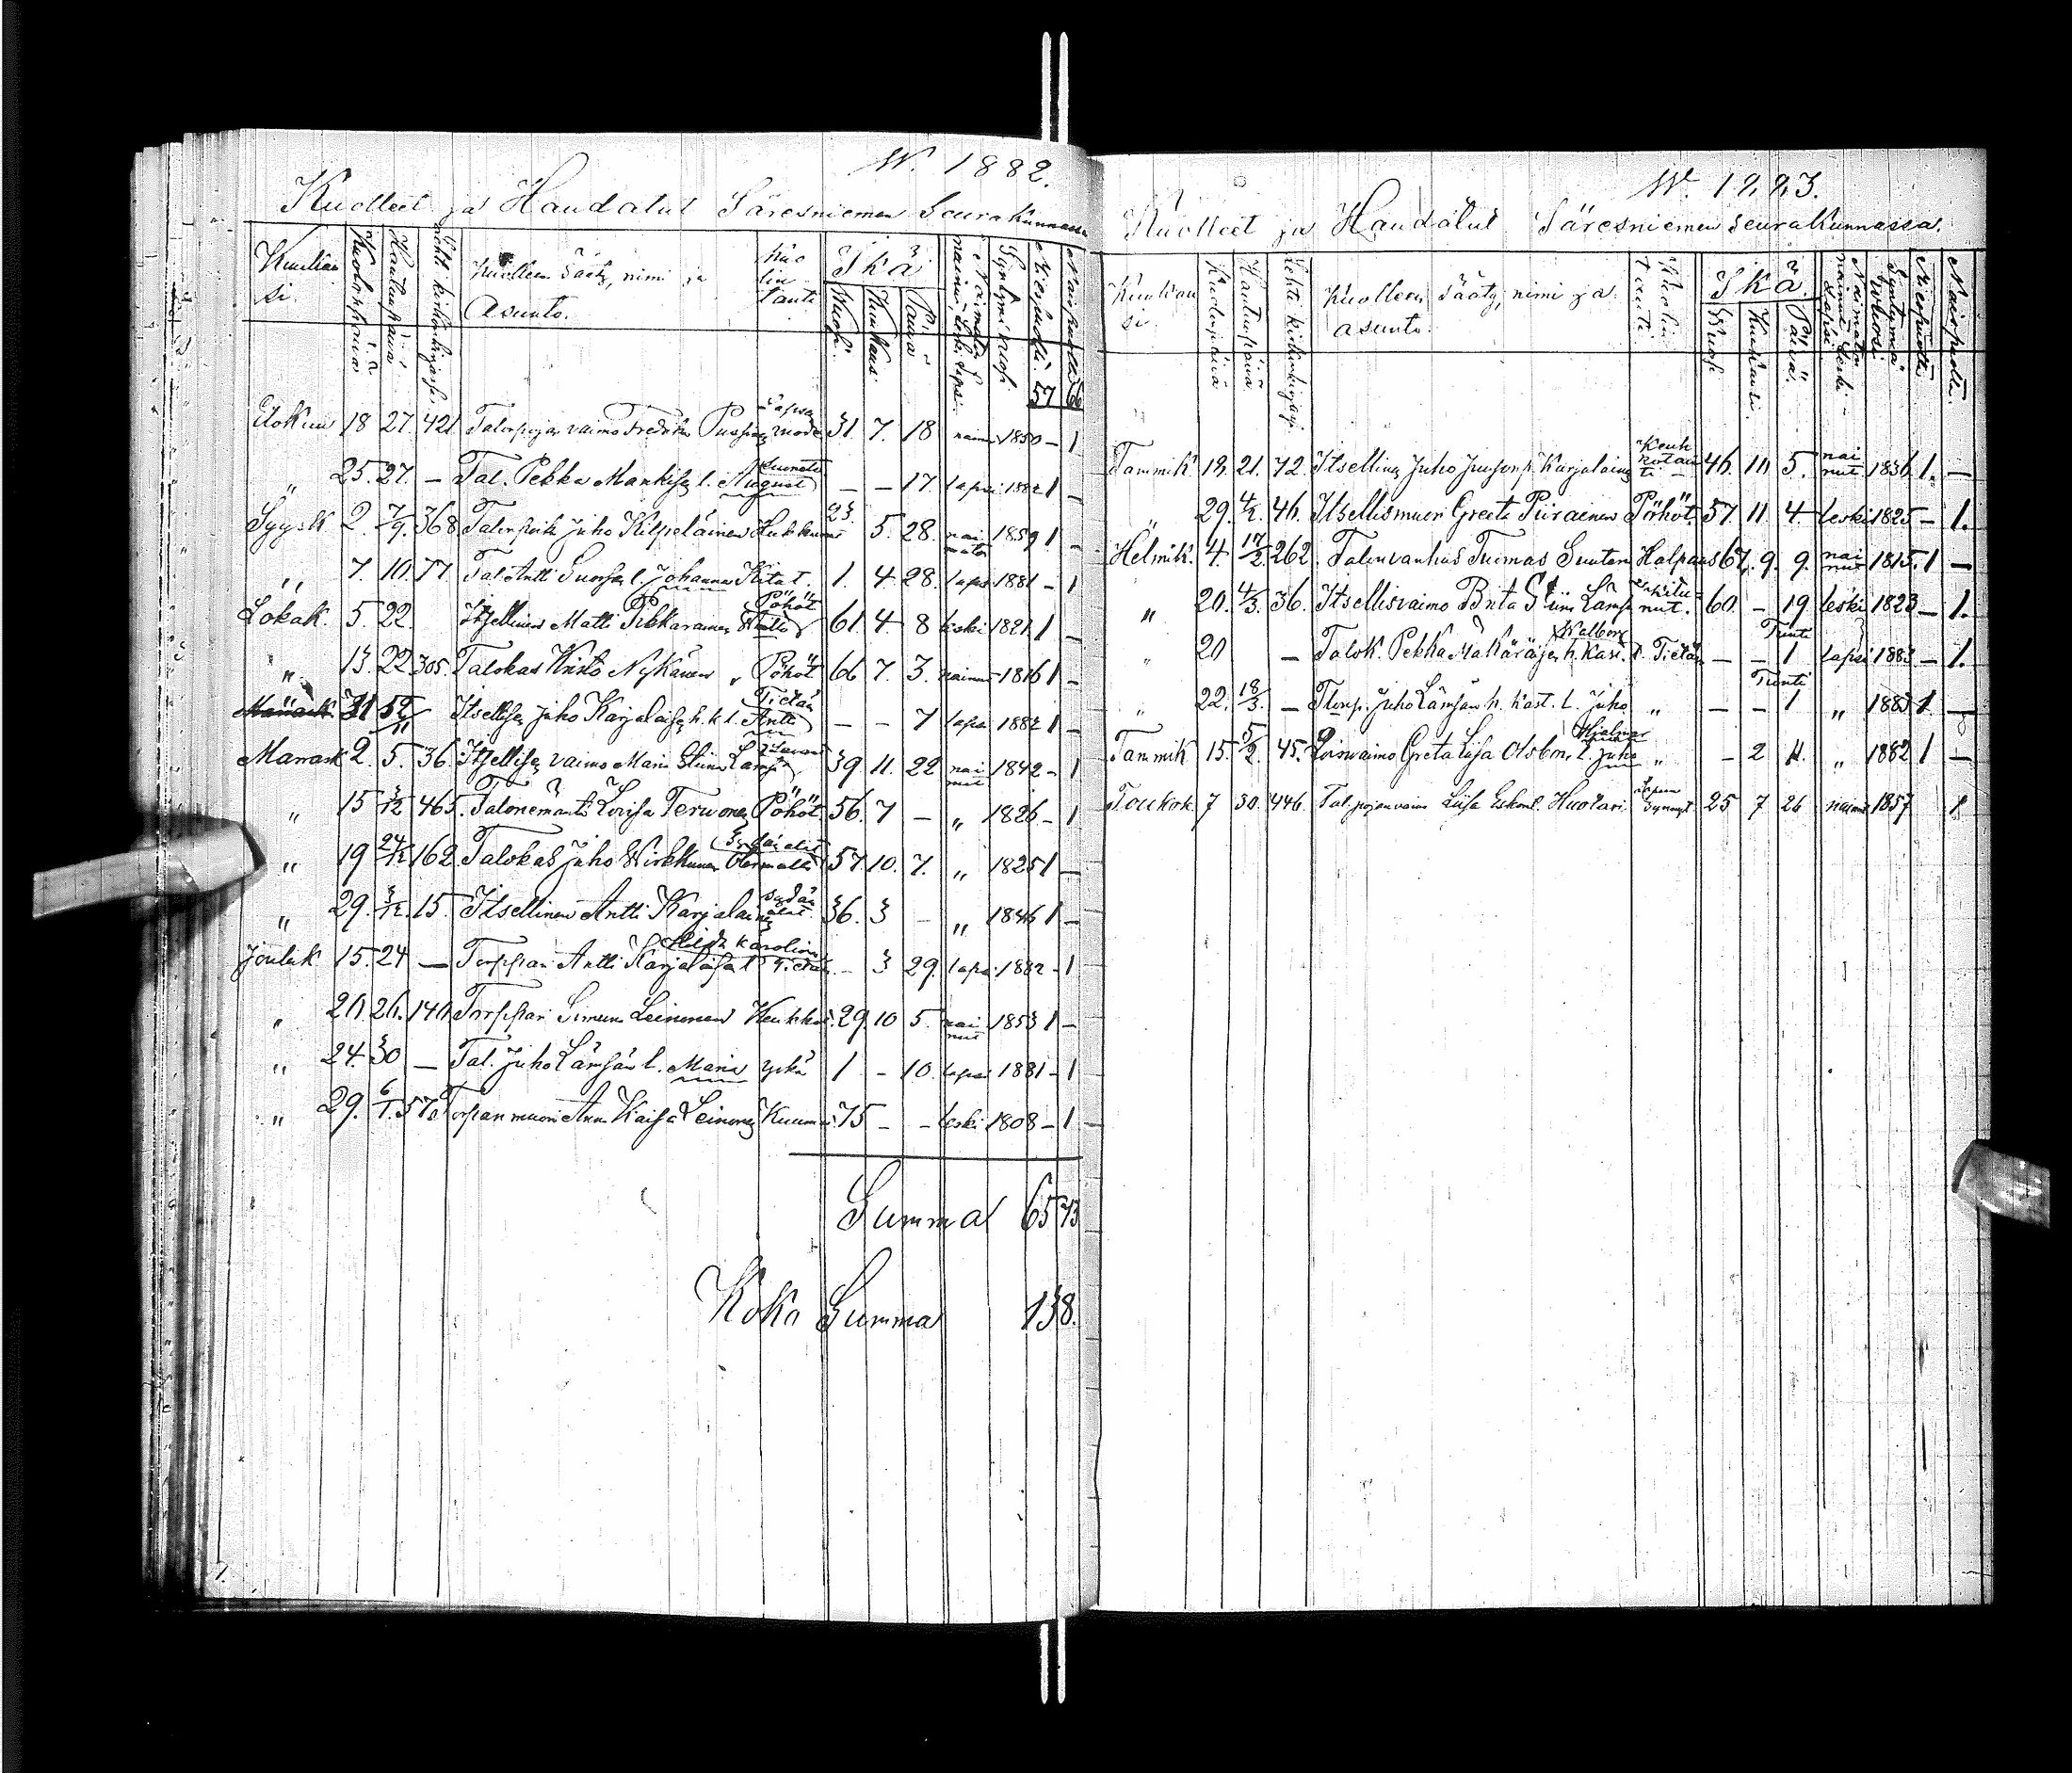 W. 1882.
Kuolleet ja Haudatut Säresniemen Seurakunnassa
Kuukausi.
Kuolinpäivä
Hautauspäivä
Lehti kirkonkirjassa.
Kuolleen Sääty, nimi ja Asunto.
Kuolintauti
Ikä
Vuosi.
Kuukausi.
Päivä
Naimaton, nainut, leski, lapsi.
Syntymävuosi
Miespuolia. 57
Naispuolia
Elokuu 18 27. 421 Talonpojan vaimo Fredrika 31. 7. 18 nainut 1850 – 1
" 25. 27. – Tal. Pekka l. August – – 17. lapsi 1882 1 –
Syysk 2. 7/9. 368 Talonpoik Juho Kilpeläinen Hukkunut 23. 5. 28. naimaton 1859 1 –
" 7. 10. 77. Tal. Antti l. Johanna 1. 4. 28. lapsi 1881 – 1
Lokak. 5. 22. Itsellinen Matti Pikkarainen Pöhöt 61. 4. 8 leski 1821 1 –
" 13. 22 305. Talokas Risto Nykänen Pöhöt 66 7. 3. nainut 1816 1 –
Marrask 31 5/11 Itsellisen Juho Karjalaisen h. k. l. Antti Tietän – – 7 lapsi 1882 1 –
Marrask 2. 5. 36. Itsellisen vaimo Maria Stiina 39 11. 22 nainut 1842 – 1
" 15 3/12 465. Talonemäntä Lovisa Tervonen Pöhöt 56. 7 – " 1826 – 1
" 19 24/12 162 Talokas Juho Wirkkunen 57. 10. 7. " 1825 1 –
" 29. 3/12. 15. Itsellinen Antti Karjalainen 36. 3 – " 1846 1 –
Jouluk 15. 24 – Torppari Antti Karjalaisen l. Hilda Karolina Tietän – 3 29. lapsi 1882 – 1
" 20. 26. 140 Torppari Simuna Leinonen 29. 10 5. nainut 1853 1 –
" 24. 30 – Tal. Juho Lämsän l. Maria yskä 1 – 10. lapsi 1881 – 1
" 29. 6/1. 570 Torpan muori Anna Kaisa Leinonen 75 – – leski 1808 – 1
Summa 65 73
Koko Summa 138.
W. 1883.
Kuolleet ja Haudatut Säresniemen seurakunnassa.
Kuukausi.
Kuolinpäivä
Hautauspäivä
Lehti kirkonkirjassa
Kuolleen sääty, nimi ja asunto.
Kuolintauti.
Ikä.
Vuosi
Kuukausi.
Päivä.
Naimaton nainut Leski Lapsi
Syntymä Vuosi.
Miespuolia
Naispuolia.
Tammik. 19. 21. 72. Itsellinen Juho Karjalainen Keuhkotauti 46. 11. 5. nainut 1836 1. –
" 29. 4/2. 46. Itsellismuori Greeta Piirainen Pöhöt. 57. 11. 4. leski 1825 – 1.
Helmik. 4. 17/2. 262. Talonvanhus Tuomas Halpaus 67. 9. 9. nainut 1815. 1 –
" 20. 4/3. 36. Itsellisvaimo Brita Stiina 60. – 19 leski 1823 – 1.
" 20 – Talok. Pekka h. kast. t. Walborg Tietän – – 1 Tunti lapsi 1883 – 1.
" 22. 18/3. – Tlonp. Juho Lämsän h. kast. l. Juho " – – 1 Tunti " 1883 1 –
Tammik 15. 5/2. 45. Loisvaimo Greta Liisa l. Juho Hjalmar " – 2 11. " 1882 1 –
Toukok. 7 30. 446. Tal. pojan vaimo Liisa Huotari 25 7 26 nainut 1857 1